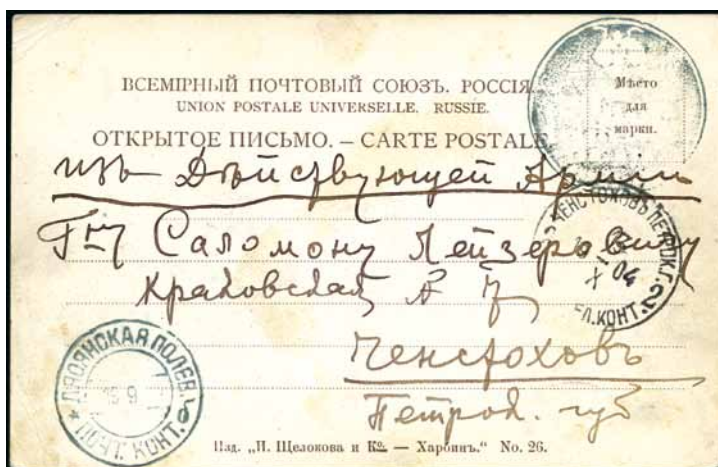 ВСЕМІРНЫЙ ПОЧТОВЫЙ СОЮЗЪ. РОССІЯ.
UNION POSTALE UNIVERSELLE. RUSSIE.
ОТКРЫТОЕ ПИСЬМО. – CARTE POSTALE
Мѣсто
для
марки.
изъ Дѣйствующей Арміи
Г-ну Саломону Лейзеровичу
Краковская № 7
Ченстоховъ
Петрок. губ
ЧЕНСТОХОВЪ ПЕТРОК. Г.
X 04
ПОЧТ. КОНТ.
ЛЯОЯНСКАЯ ПОЛЕВ.
9
ПОЧТ. КОНТ.
Изд. „И. Щелокова и Кº. — Харбинъ." No. 26.